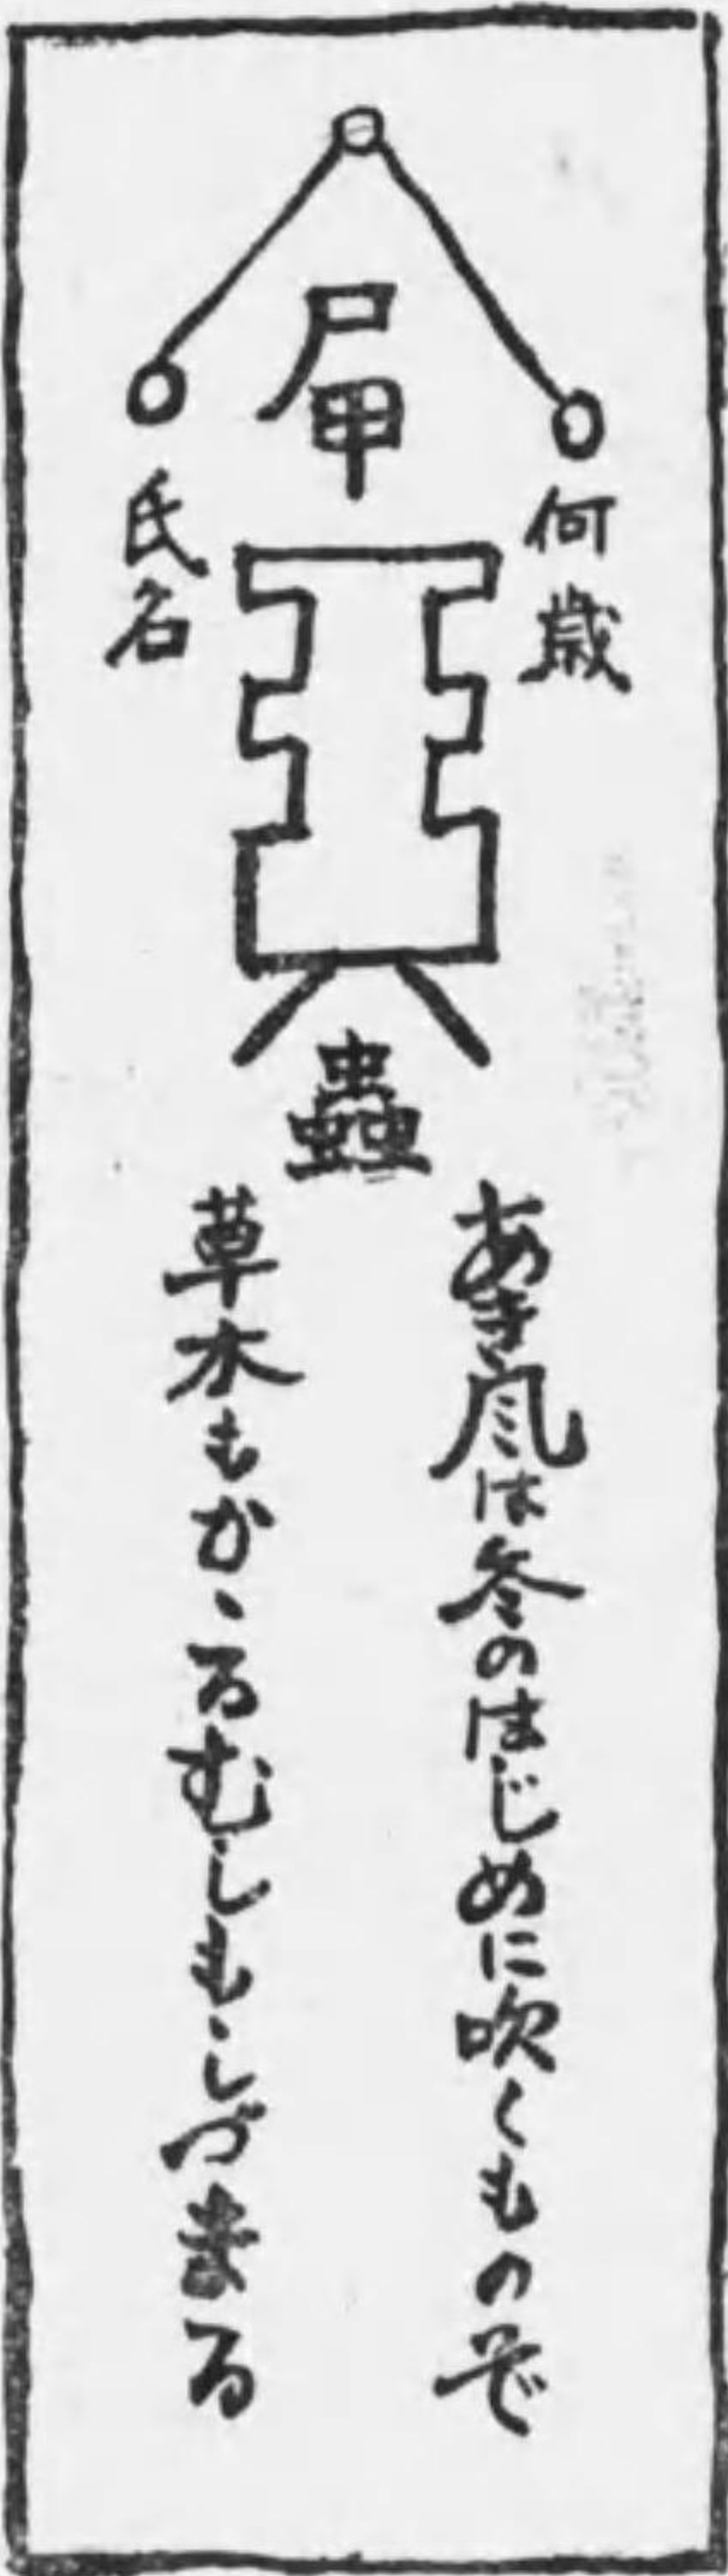 何歳
氏名
蟲
あき風は冬のはじめに吹くものぞ
草木もかゝるむしもしづまる